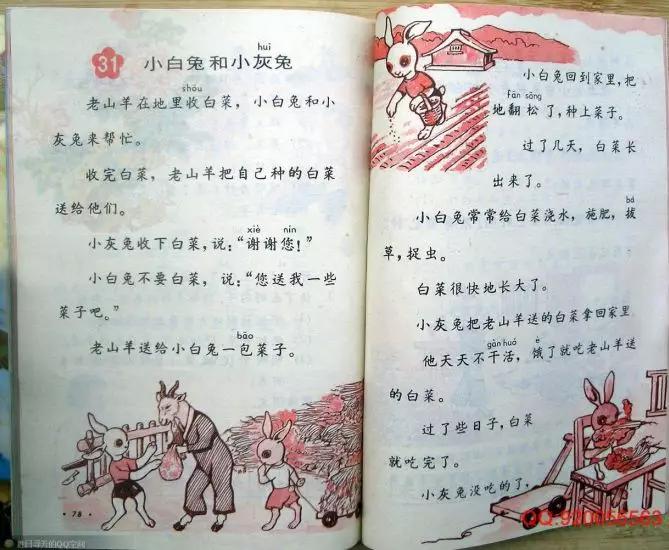 31 小白兔和小灰兔
huī
shōu
老山羊在地里收白菜,小白兔和小
灰兔来帮忙。
收完白菜,老山羊把自己种的白菜
送给他们。
xiè nín
小灰兔收下白菜,说:“谢谢您!”
小白兔不要白菜,说:“您送我一些
菜子吧。”
bāo
老山羊送给小白兔一包菜子。
·78·
小白兔回到家里,把
fān sōng
地翻松了,种上菜子。
过了几天,白菜长
出来了。
bá
小白兔常常给白菜浇水,施肥,拔
草,捉虫。
白菜很快地长大了。
小灰兔把老山羊送的白菜拿回家里
gàn huó è
他天天不干活,饿了就吃老山羊送
的白菜。
过了些日子,白菜
就吃完了。
小灰兔没吃的了,
QQ:920056563
的QQ空间